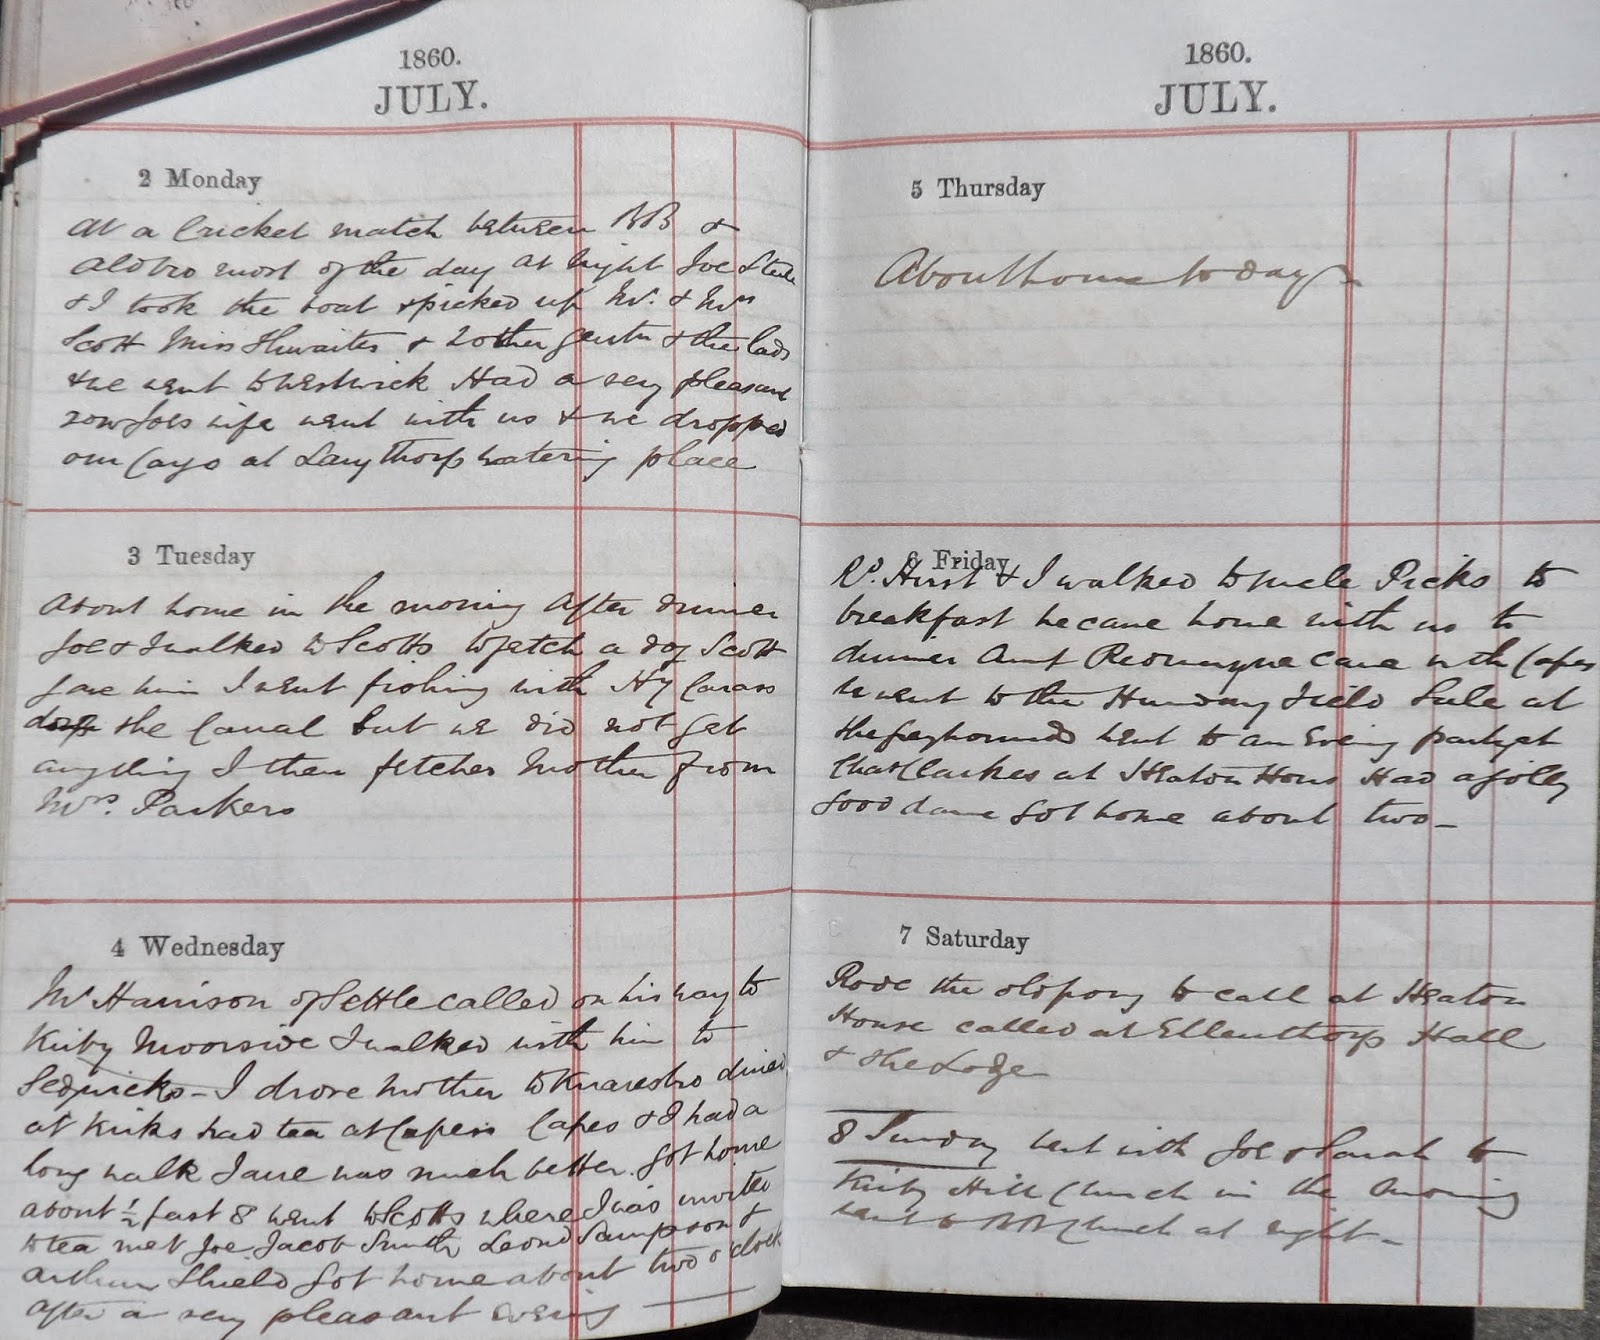 1860.
JULY.
2 Monday
At a Cricket match between BB &
Aldbro most of the day at night Joe Steele
& I took the boat & picked up Mr. & Mrs
Scott Miss Thwaites & 2 other gentn & the lads
& we went to Westwick Had a very pleasant
row Joes wife went with us & we dropped
our at Langthorp watering place
3 Tuesday
About home in the morning after dinner
Joe & I walked to Scotts to fetch a dog Scott
gave him I went fishing with Hy
down the Canal but we did not get
anything I then fetched Mother from
Mrs. Parkers
4 Wednesday
Mr Harrison of Settle called on his way to
Kirby Moorside I walked with him to
Sedgwicks – I drove Mother to Knaresbro dined
at Kirks had tea at Capes Capes & I had a
long walk Jane was much better. Got home
about ½ past 8 went to Scotts where I was invited
to tea met Joe Jacob Smith Leond Sampson &
Arthur Shield got home about two o'clock
after a very pleasant evening
1860.
JULY.
5 Thursday
About home to day –
6 Friday
R. Hirst & I walked to uncle Picks to
breakfast he came home with us to
dinner Aunt Redmayne came with Capes
we went to the Field Sale at
the greyhounds went to an Evening party at
Chas Clarkes at Heaton House Had a jolly
good dance got home about two –
7 Saturday
Rode the old pony to call at Heaton
House called at Ellenthorp Hall
& the Lodge
8 Sunday went with Joe & Sarah to
Kirby Hill Church in the Morning
went to BB Church at night –